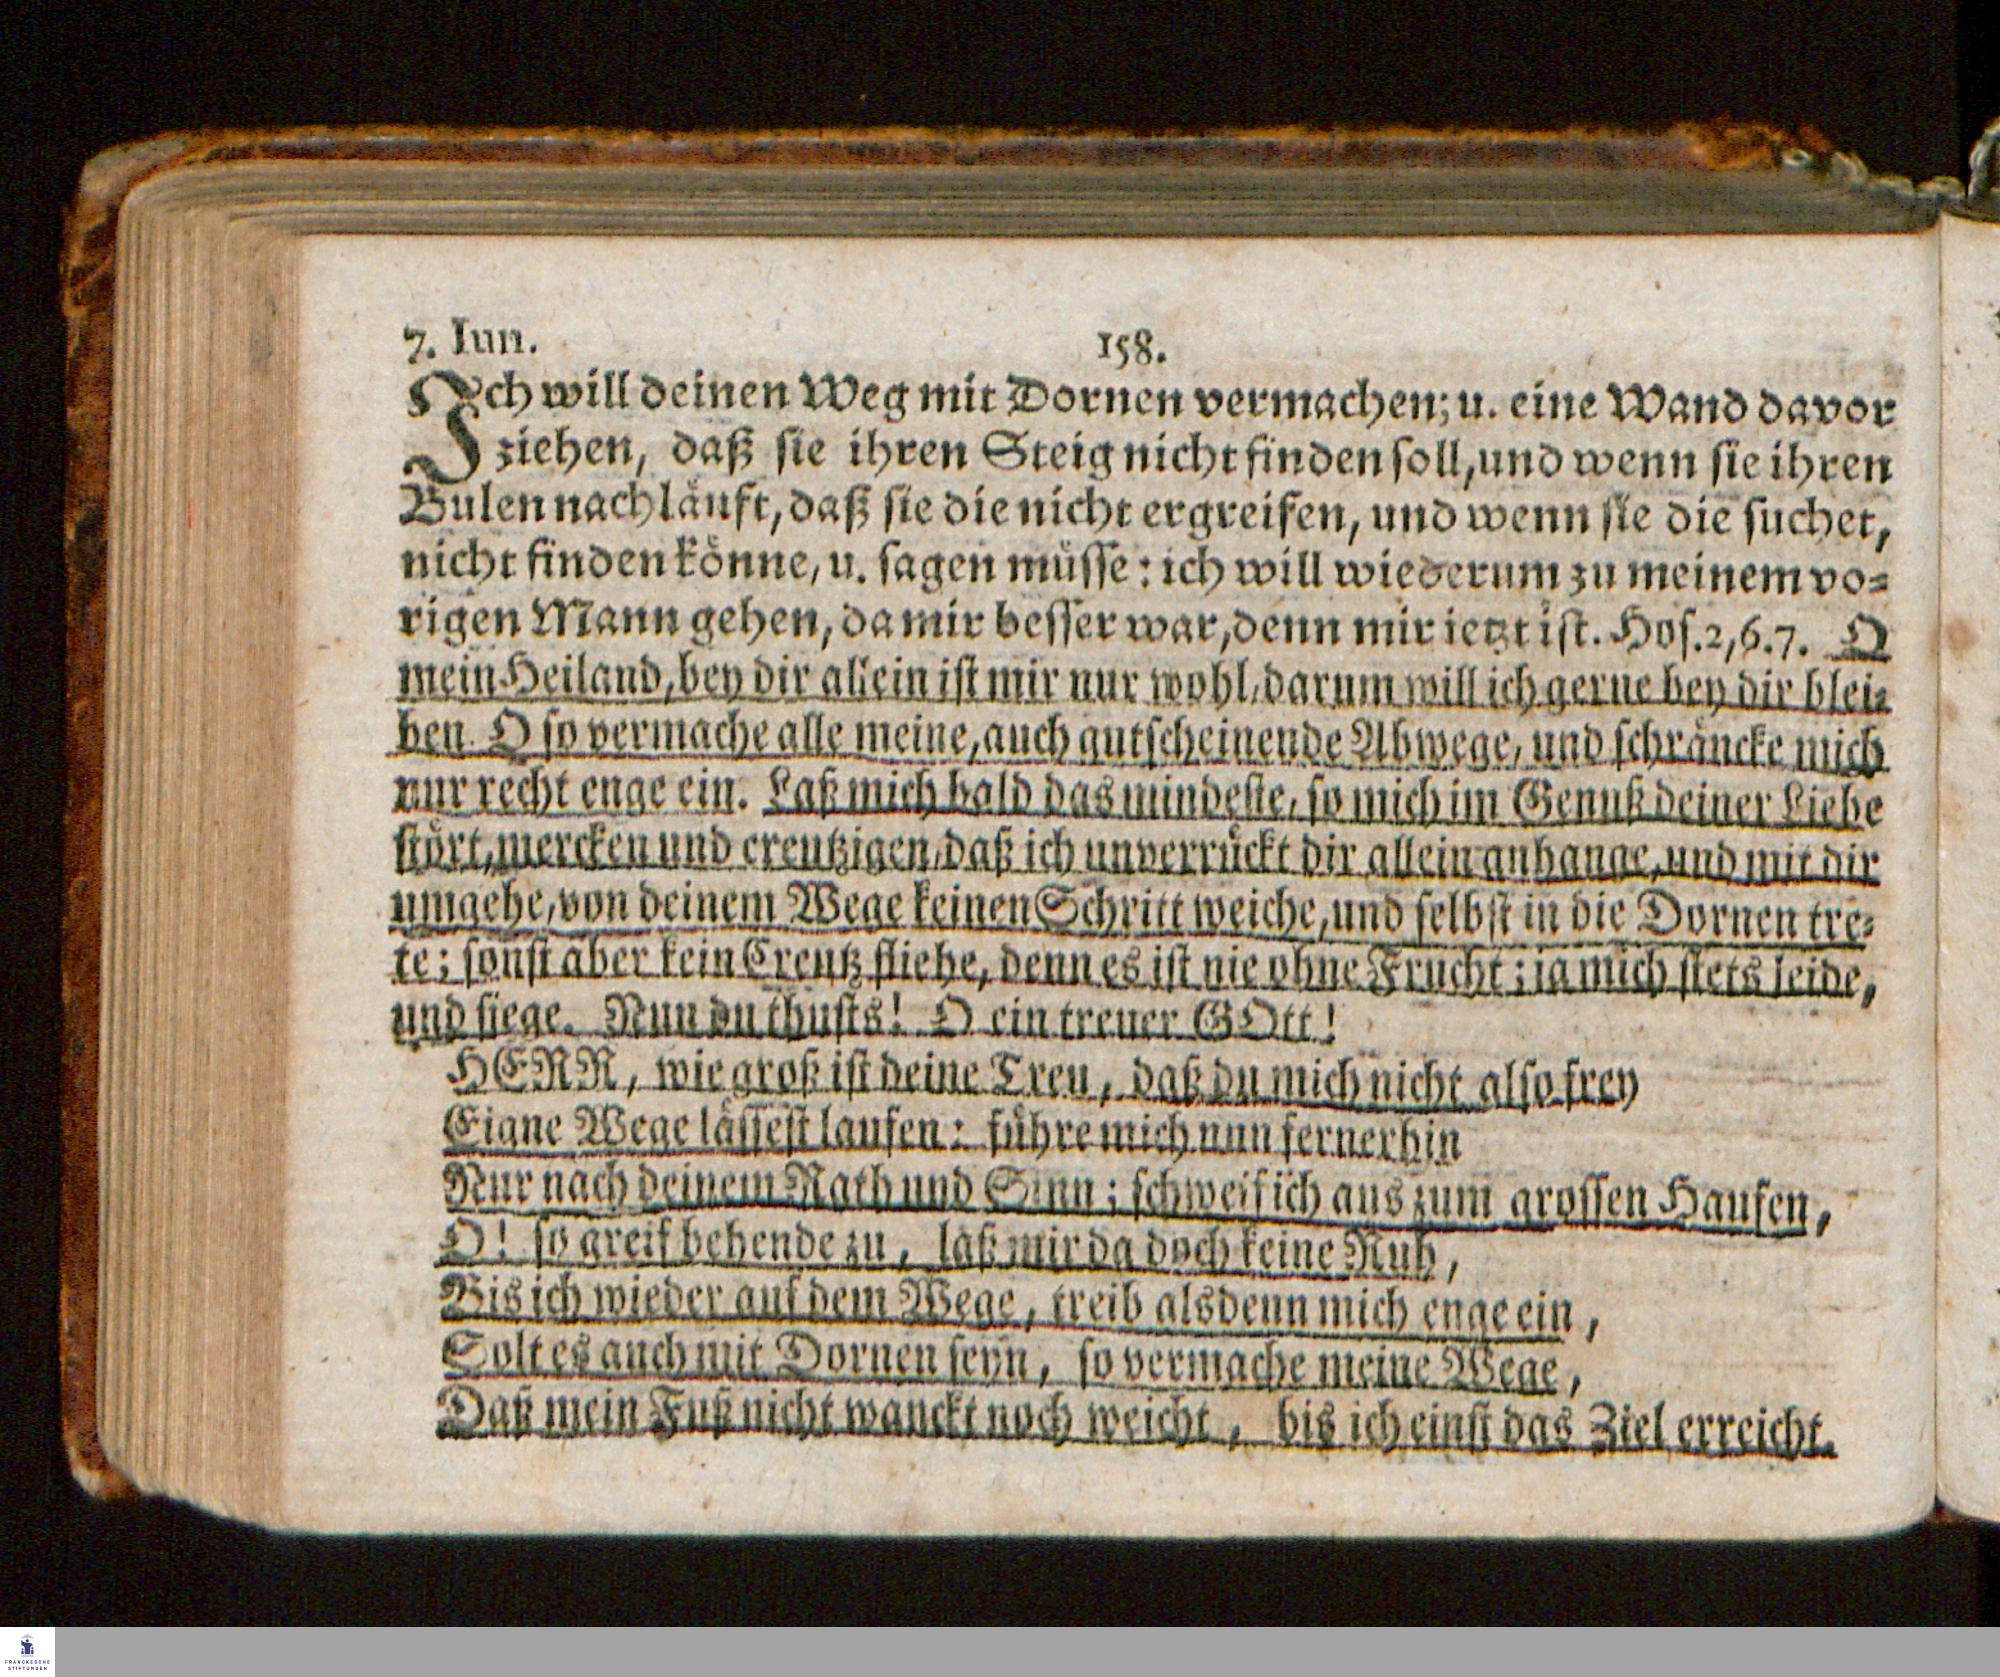 7. Iun.
158.
Ich will deinen Weg mit Dornen vermachen; u. eine Wand davor
ziehen, daß sie ihren Steig nicht finden soll, und wenn sie ihren
Bulen nachläuft, daß sie die nicht ergreifen, und wenn sie die suchet,
nicht finden könne, u. sagen müsse: ich will wiederum zu meinem vo-
rigen Mann gehen, da mir besser war, denn mir ietzt ist. Hos. 2, 6. 7. O
mein Heiland, bey dir allein ist mir nur wohl, darum will ich gerne bey dir blei-
ben. O so vermache alle meine, auch gutscheinende Abwege, und schräncke mich
nur recht enge ein. Laß mich bald das mindeste, so mich im Genuß deiner Liebe
stört, mercken und creutzigen, daß ich unverrückt dir allein anhange, und mit dir
umgehe, von deinem Wege keinen Schritt weiche, und selbst in die Dornen tre-
te; sonst aber kein Creutz fliehe, denn es ist nie ohne Frucht; ja mich stets leide,
und siege. Nun du thusts! O ein treuer GOtt!
HERR, wie groß ist deine Treu, daß du mich nicht also frey
Eigne Wege lässest laufen: führe mich nun fernerhin
Nur nach deinem Rath und Sinn; schweif ich aus zum grossen Haufen,
O! so greif behende zu, laß mir da doch keine Ruh,
Bis ich wieder auf dem Wege, treib alsdenn mich enge ein,
Solt es auch mit Dornen seyn, so vermache meine Wege,
Daß mein Fuß nicht wanckt noch weicht, bis ich einst das Ziel erreicht.
FRANCKESCHE
STIFTUNGEN